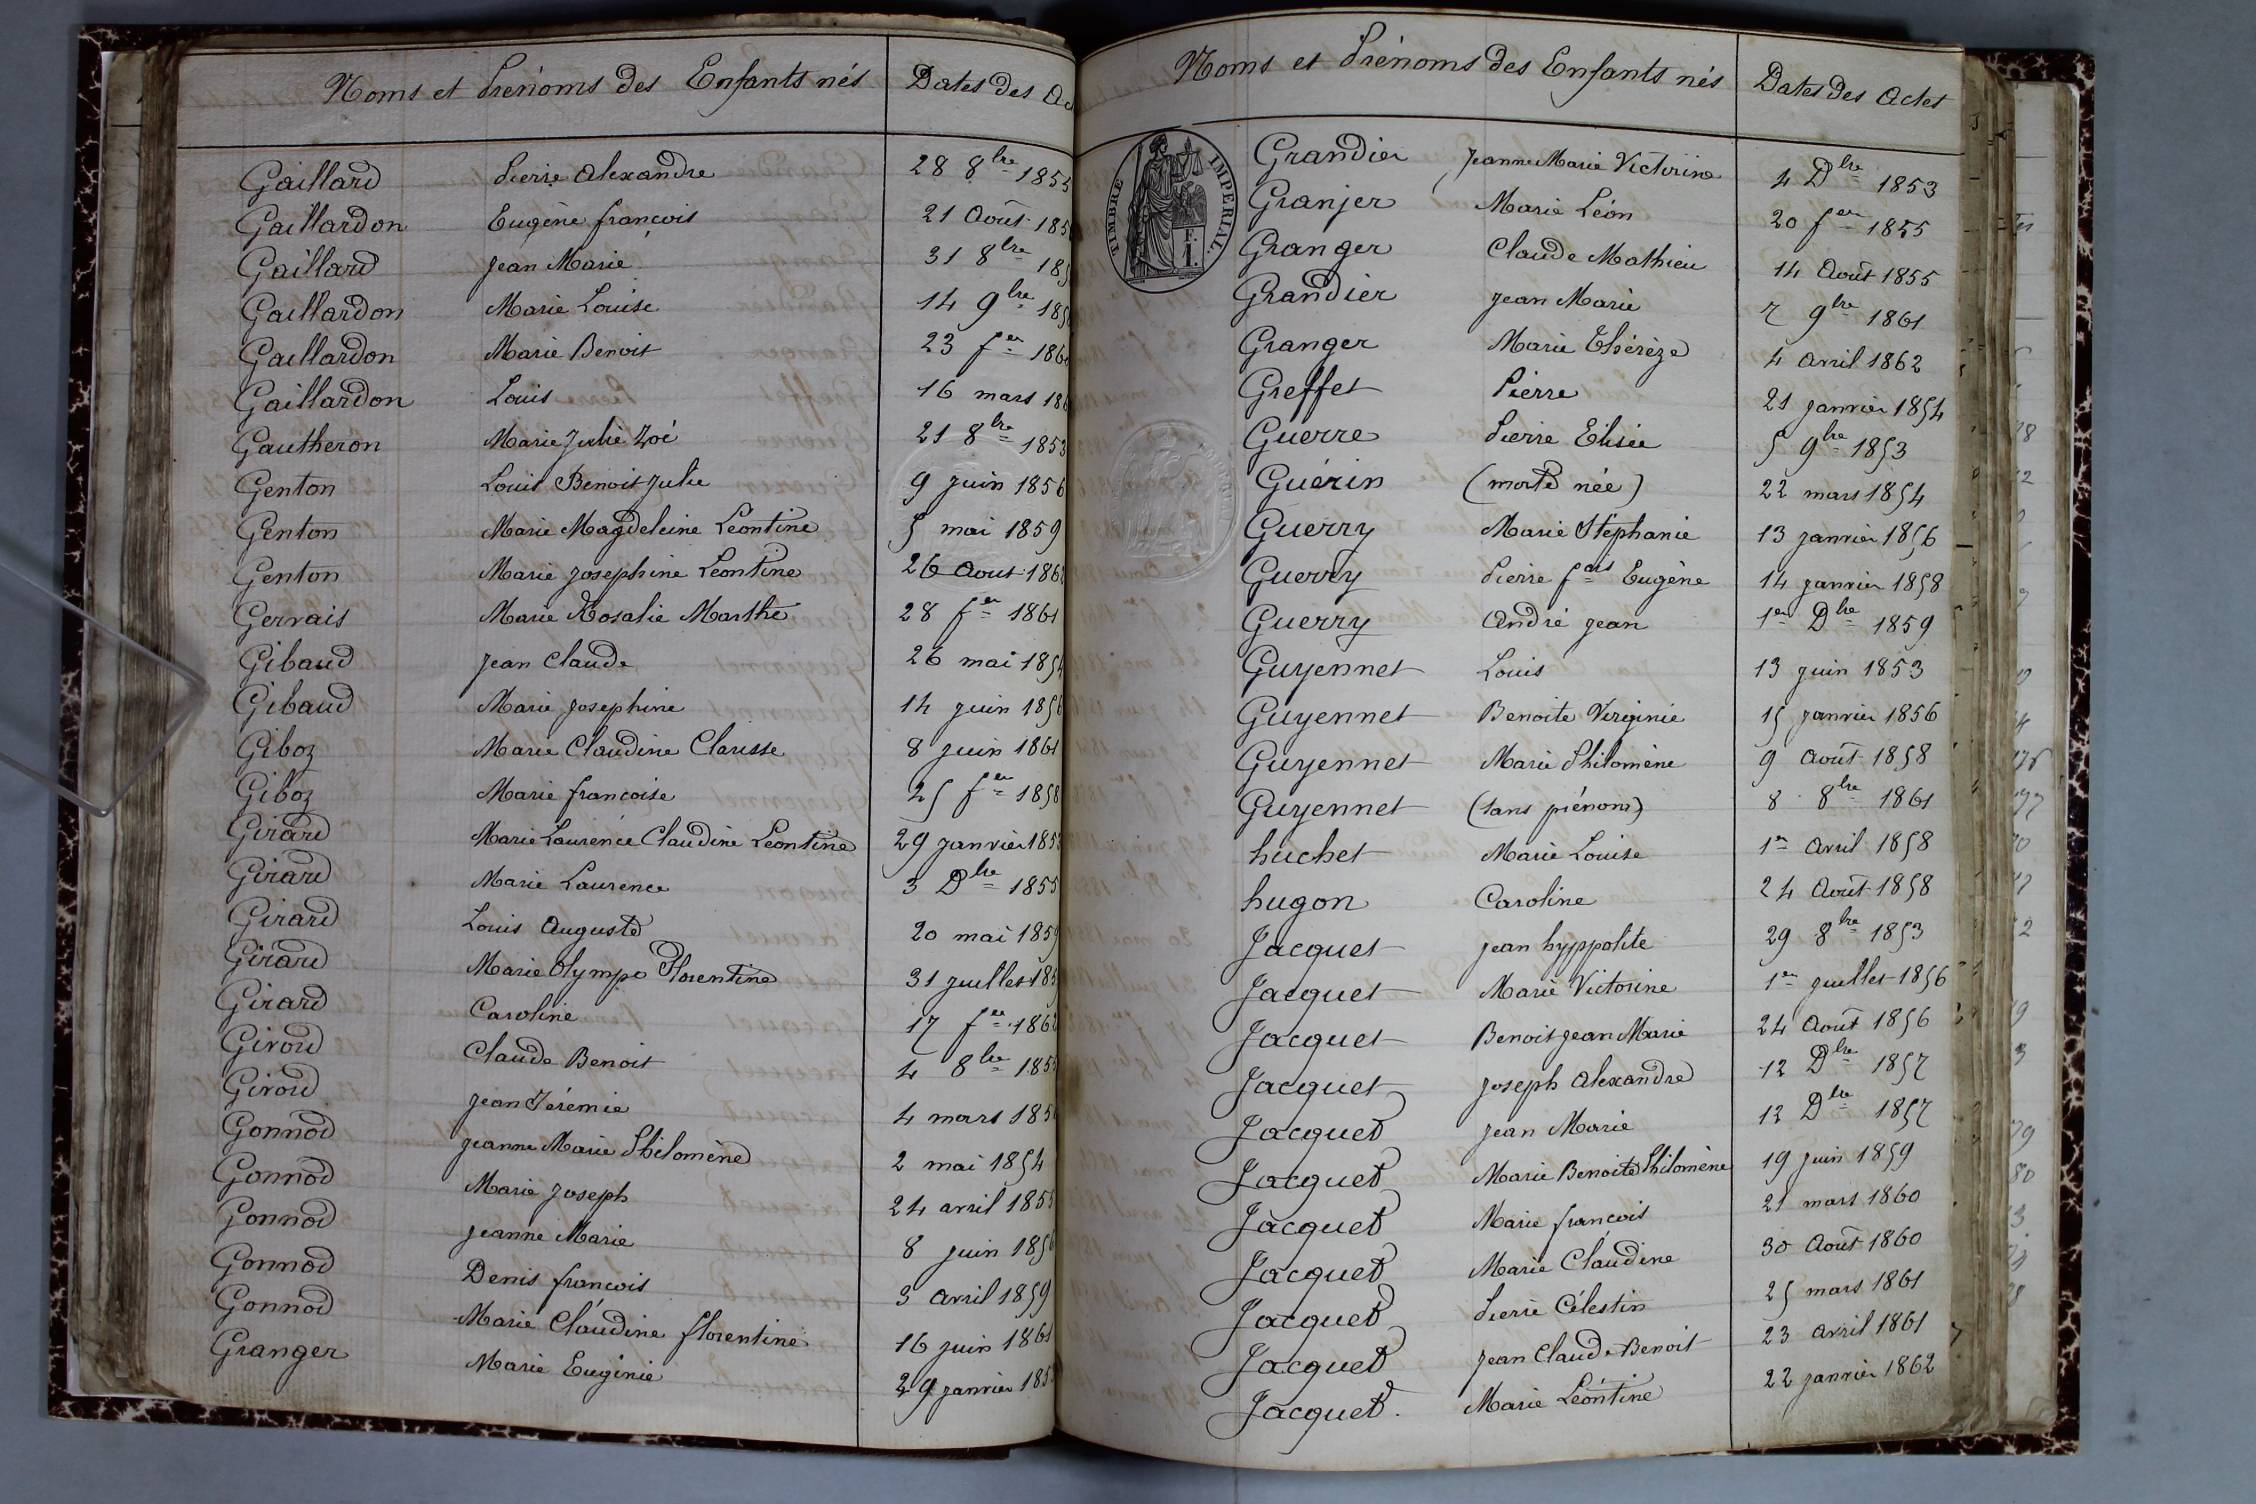 Noms et Prénoms des Enfants nés Dates des Ac
Gaillard Pierre Alexandre 28 8bre 1855
Gaillardon Eugène françois 21 Août 185
Gaillard Jean Marie 31 8bre 185
Gaillardon Marie Louise 14 9bre 185
Gaillardon Marie Benoit 23 fer 186
Gaillardon Louis 16 mars 186
Gautheron Marie Julie Zoé 21 8bre 1853
Genton Louis Benoit Julie 9 juin 1856
Genton Marie Magdeleine Léontine 5 mai 1859
Genton Marie Josephine Leontine 26 Aout 186
Gervais Marie Rosalie Marthe 28 fer 1861
Gibaud Jean Claude 26 mai 1854
Gibaud Marie Josephine 14 juin 1856
Giboz Marie Claudine Clarisse 8 juin 1861
Giboz Marie francoise 25 fer 1858
Girard Marie Laurence Claudine Leontine 29 janvier 185
Girard Marie Laurence 3 Dbre 1855
Girard Louis Auguste 20 mai 1859
Girard Marie Olympe Florentine 31 juillet 185
Girard Caroline 17 fer 1862
Giroud Claude Benoit 4 8bre 1855
Giroud Jean Jérémie 4 mars 185
Gonnod Jeanne Marie Philomène 2 mai 1854
Gonnod Marie Joseph 24 avril 1855
Gonnod Jeanne Marie 8 juin 1856
Gonnod Denis francois 3 avril 1859
Gonnod Marie Claudine florentine 16 juin 1861
Granger Marie Eugénie 29 janvier 185
Noms et Prénoms des Enfants nés Dates des Actes
TIMBRE IMPERIAL
E. F.
Grandier Jeanne Marie Victorine 4 Dbre 1853
Granjer Marie Léon 20 fer 1855
Granger Claude Mathieu 14 Août 1855
Grandier Jean Marie 7 9bre 1861
Granger Marie Thérèze 4 avril 1862
Greffet Pierre 21 janvier 1854
Guerre Pierre Elisée 5 9bre 1853
Guérin (morte née) 22 mars 1854
Guerry Marie Stéphanie 13 janvier 1856
Guerry Pierre fois Eugène 14 janvier 1858
Guerry André Jean 1er Dbre 1859
Guyennet Louis 13 juin 1853
Guyennet Benoite Virginie 15 janvier 1856
Guyennet Marie Philomène 9 Août 1858
Guyennet (sans prénoms) 8 8bre 1861
huchet Marie Louise 1er Avril 1858
hugon Caroline 24 Août 1858
Jacquet Jean hyppolite 29 8bre 1853
Jacquet Marie Victorine 1er juillet 1856
Jacquet Benoit Jean Marie 24 Août 1856
Jacquet Joseph Alexandre 12 Dbre 1857
Jacquet Jean Marie 12 Dbre 1857
Jacquet Marie Benoite Philomène 19 juin 1859
Jacquet Marie francois 21 mars 1860
Jacquet Marie Claudine 30 Août 1860
Jacquet Pierre Célestin 25 mars 1861
Jacquet Jean Claude Benoit 23 Avril 1861
Jacquet Marie Léontine 22 janvier 1862